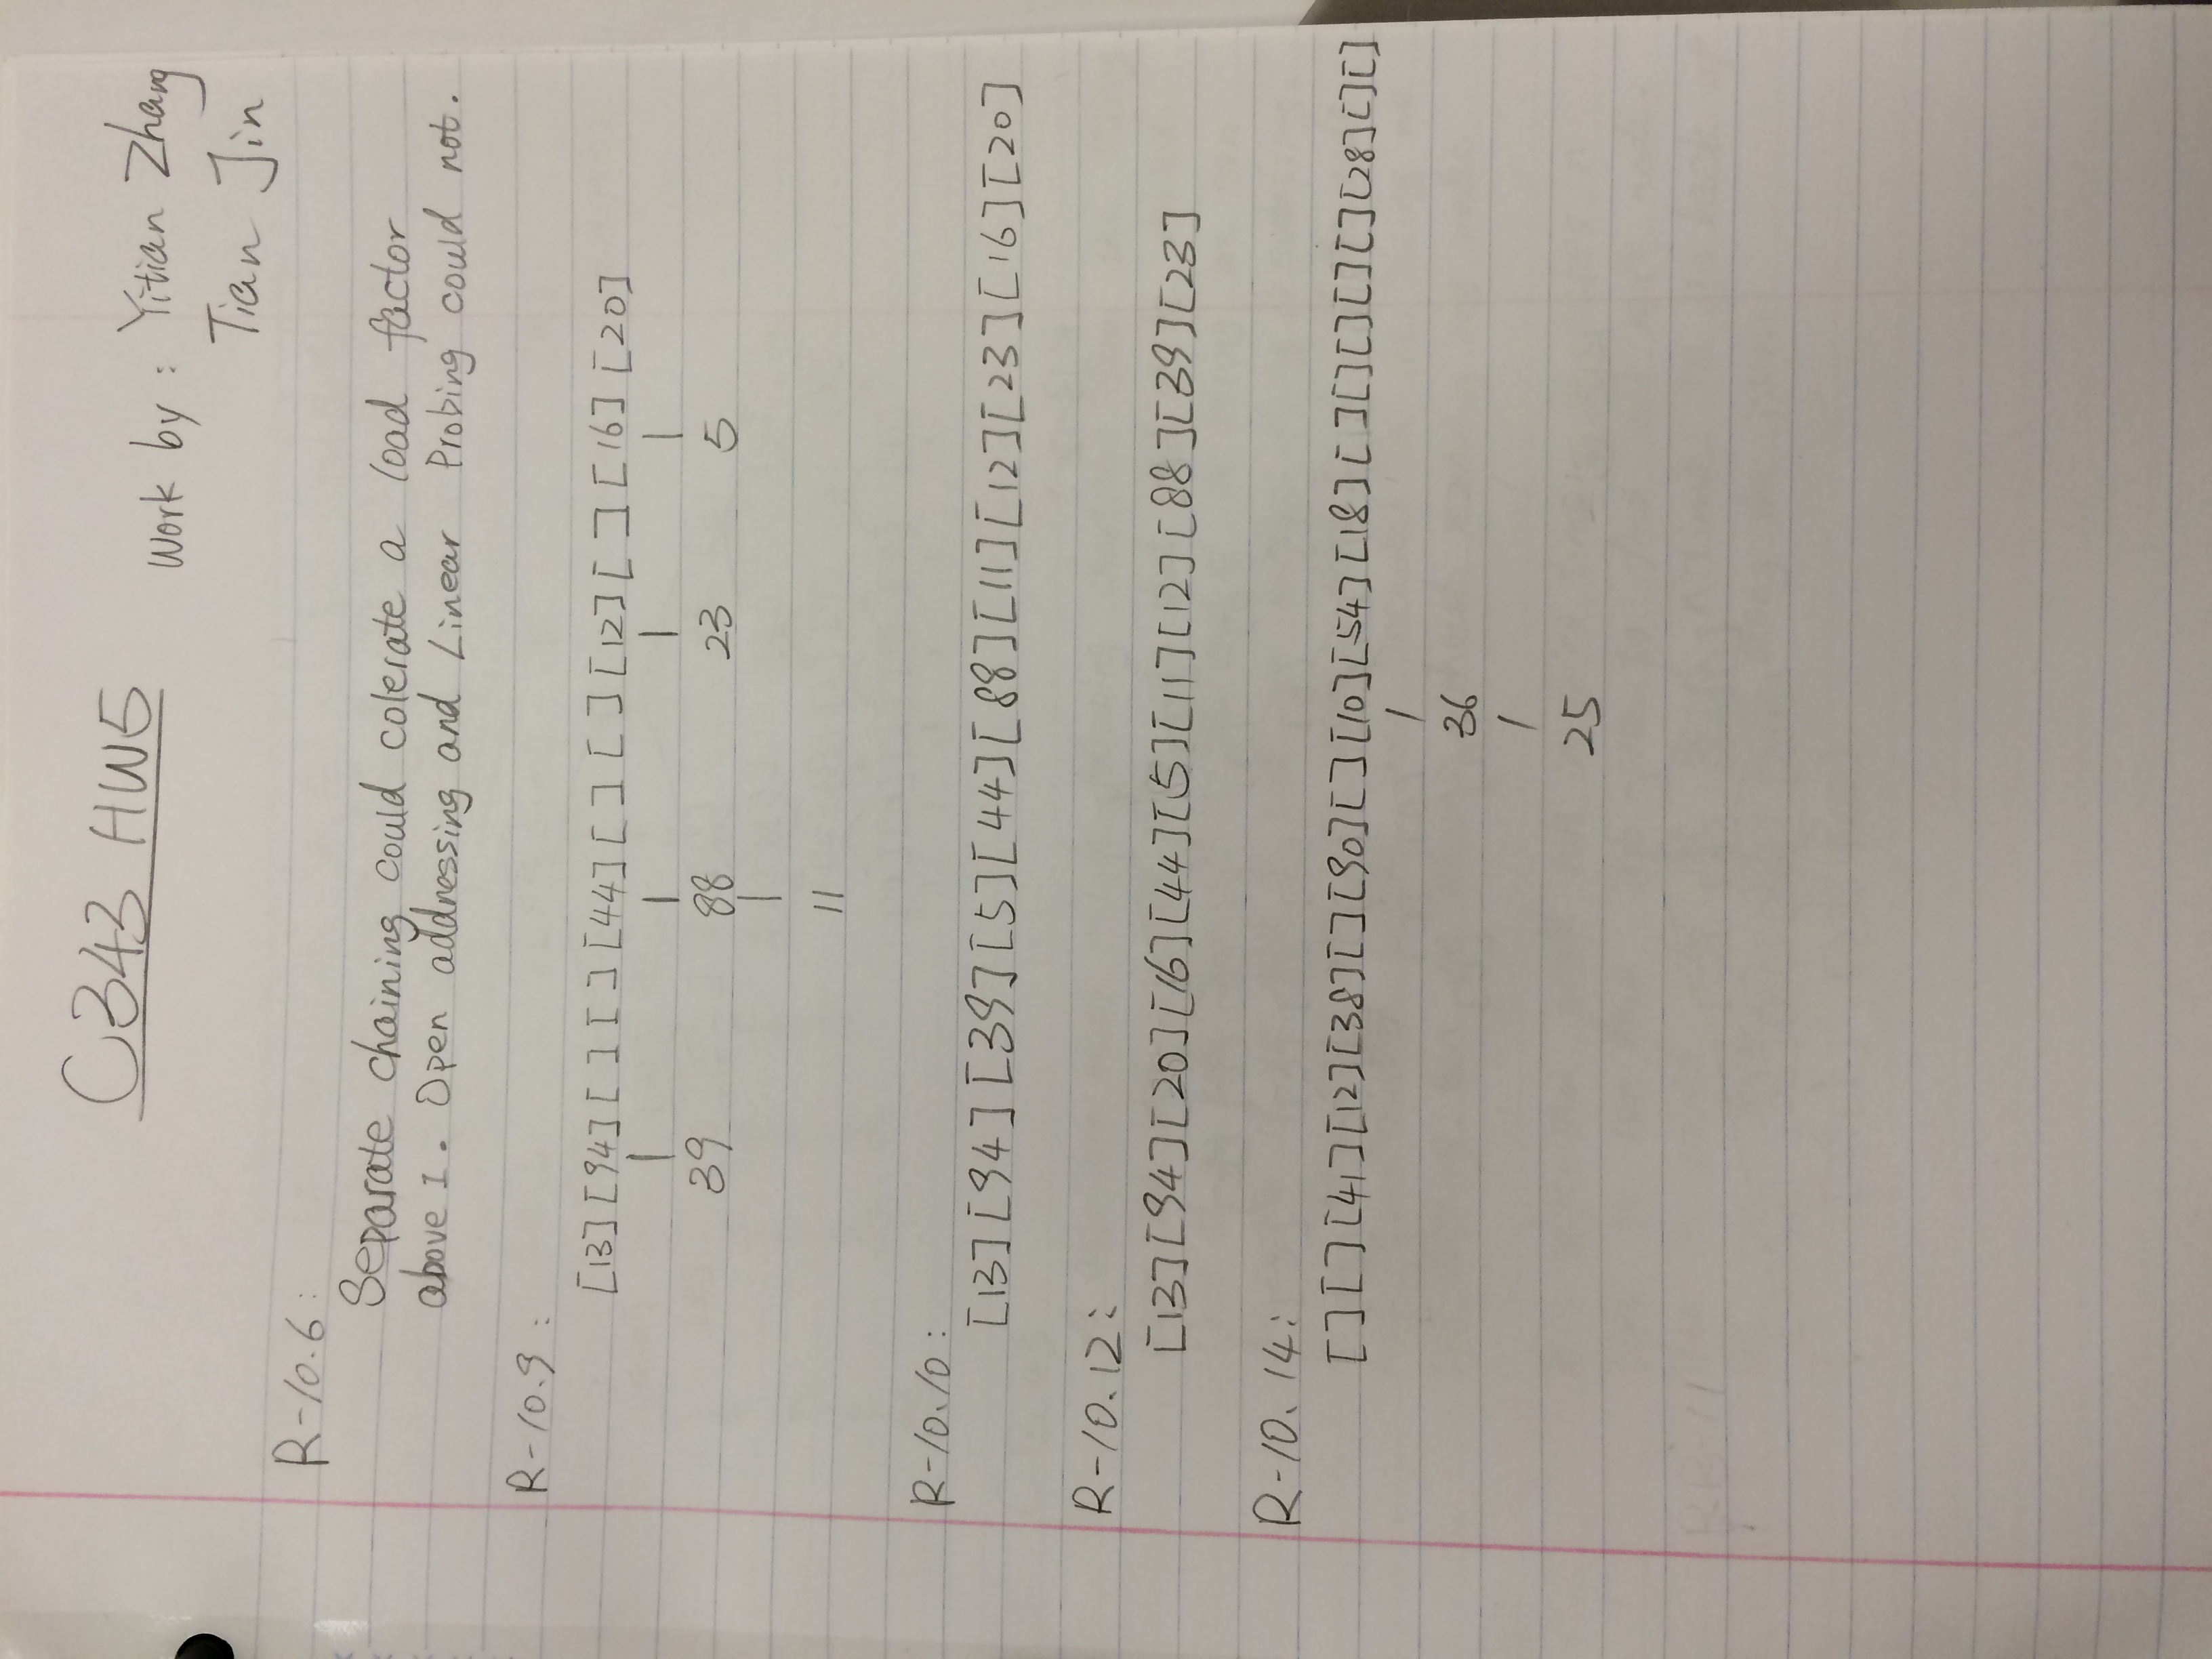 C343 HW5
Work by: Yitian Zhang
Tian Jin
R-10.6:
Separate chaining could colerate a load factor
above 1. Open addressing and Linear Probing could not.
R-10.9:
[13] [94] [ ] [ ] [44] [ ] [ ] [12] [ ] [16] [20]
| | | |
39 88 23 5
|
11
R-10.10:
[13] [94] [39] [5] [44] [88] [11] [12] [23] [16] [20]
R-10.12:
[13] [94] [20] [16] [44] [5] [11] [12] [88] [39] [23]
R-10.14:
[ ] [ ] [41] [12] [38] [ ] [90] [ ] [10] [54] [18] [ ] [ ] [ ] [ ] [ ] [28] [ ] [ ]
|
36
|
25